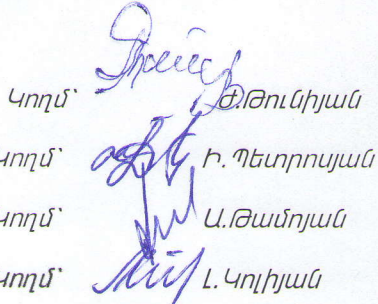 Կողմ՝ Ժ.Թունիյան
կողմ՝ Ի. Պետրոսյան
կողմ՝ Ա.Թամոյան
կողմ՝ Լ.Կոլիյան